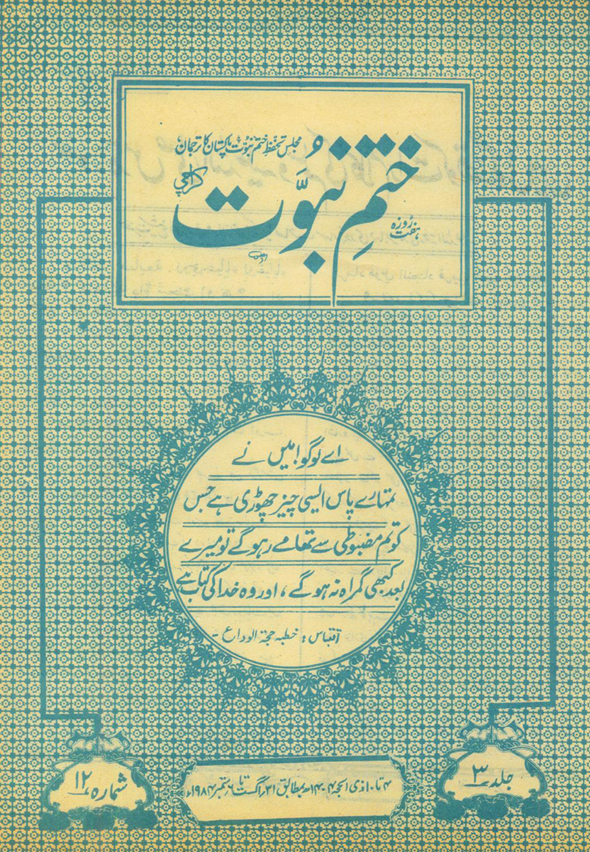 مجلس تحفظ ختم نبوت پاکستان کا ترجمان
ہفت روزہ
ختمِ نبوّت
کراچی
اے لوگو! میں نے
تمہارے پاس ایسی چیز چھوڑی ہے جس
کو تم مضبوطی سے تھامے رہو گے تو میرے
بعد کبھی گمراہ نہ ہو گے، اور وہ خدا کی کتاب ہے
اقتباس: خطبہ حجۃ الوداع -
جلد ۳
۴ تا ۱۰ ذی الحجہ ۱۴۰۴ھ بمطابق ۳۱ اگست تا ۶ ستمبر ۱۹۸۴ء
شمارہ ۱۲